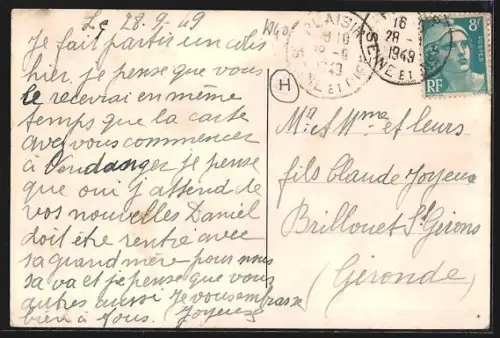 Le 28.9.49
Je fait partir un colis
hier je pense que vous
le recevrai en même
temps que la carte
avez vous commencer
à Vendanger je pense
que oui j'attend de
vos nouvelles Daniel
doit être rentré avec
sa grand mère pour nous
sa va et je pense que vous
autres aussi Je vous embrasse
bien à tous. Joyeux
H
PLAISIR
SEINE ET OISE
16
28 - 9
1949
SEINE ET
8F
POSTES
RF
Mr et Mme et leurs
fils Claude Joyeux
Brillouet St Girons
(Gironde)